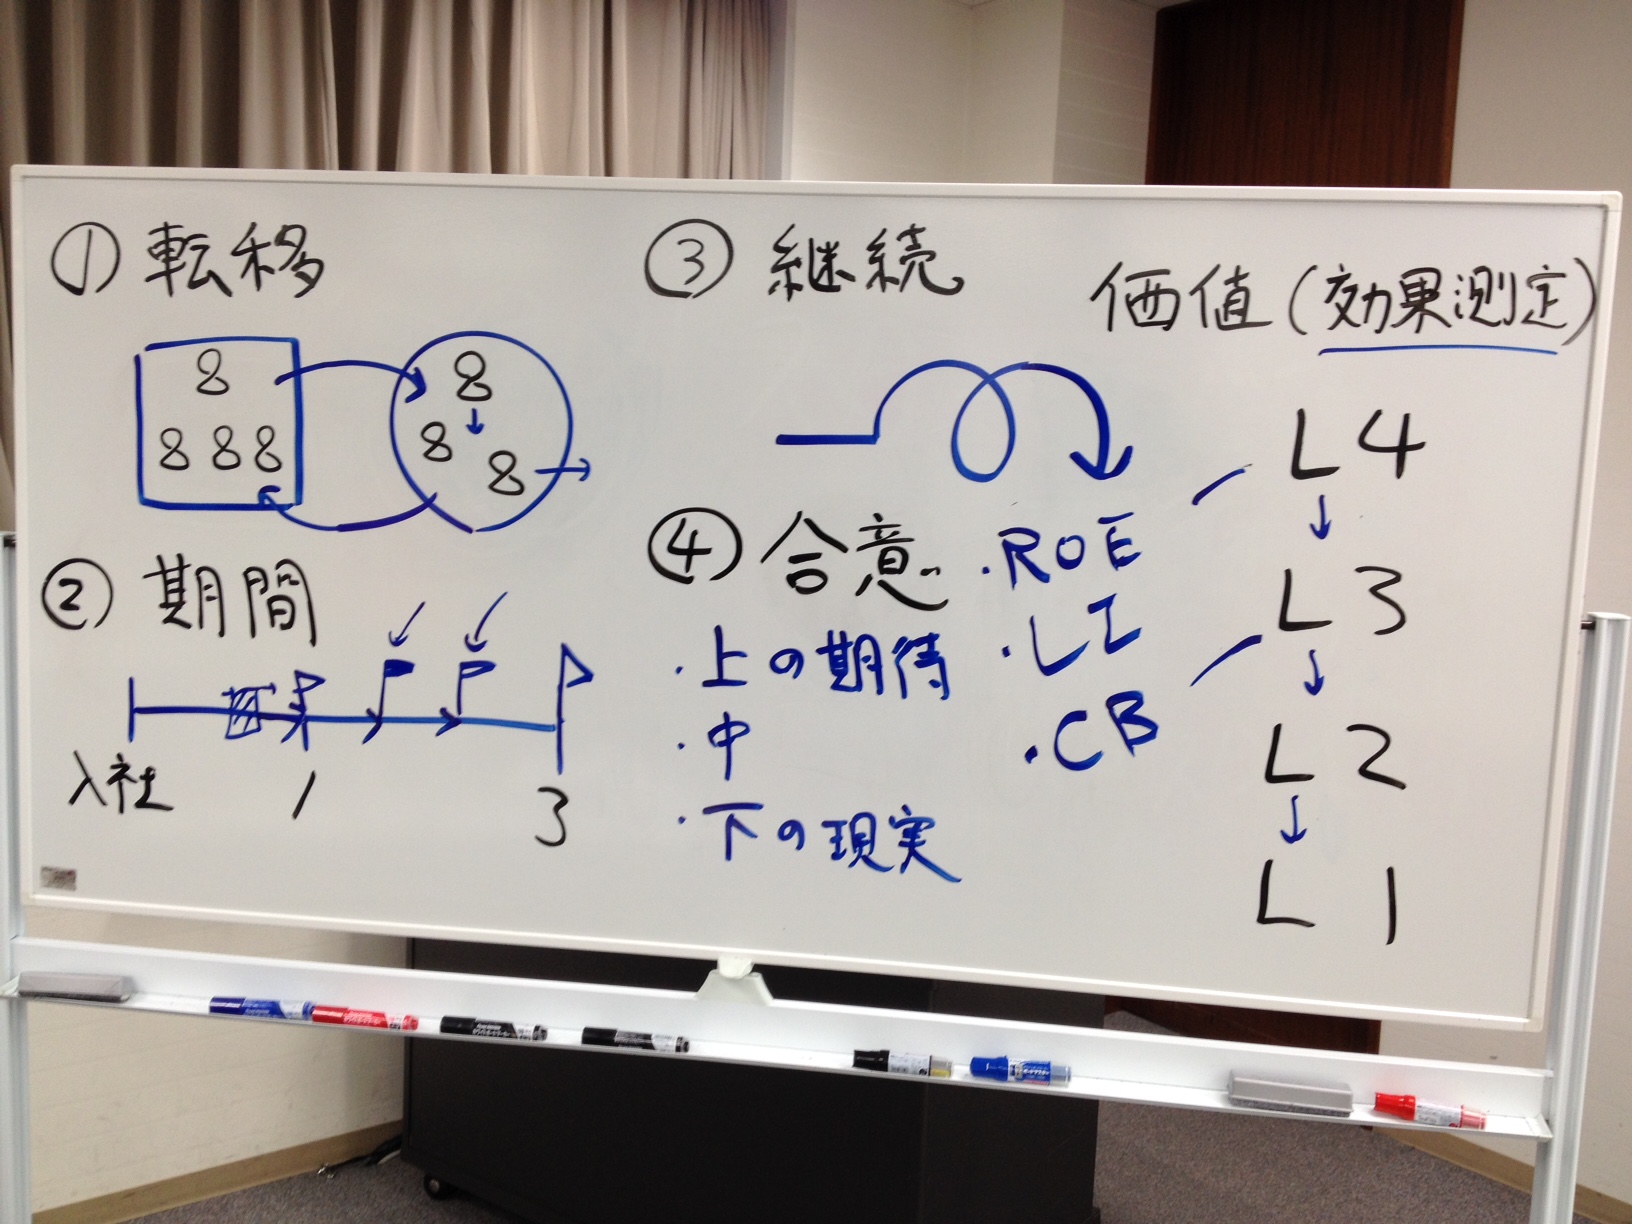 ① 転移
8
8 8 8
8
8
8
② 期間
入社
1
3
③ 継続
④ 合意
・上の期待
・中
・下の現実
・ROE
・LI
・CB
価値(効果測定)
L4
L3
L2
L1